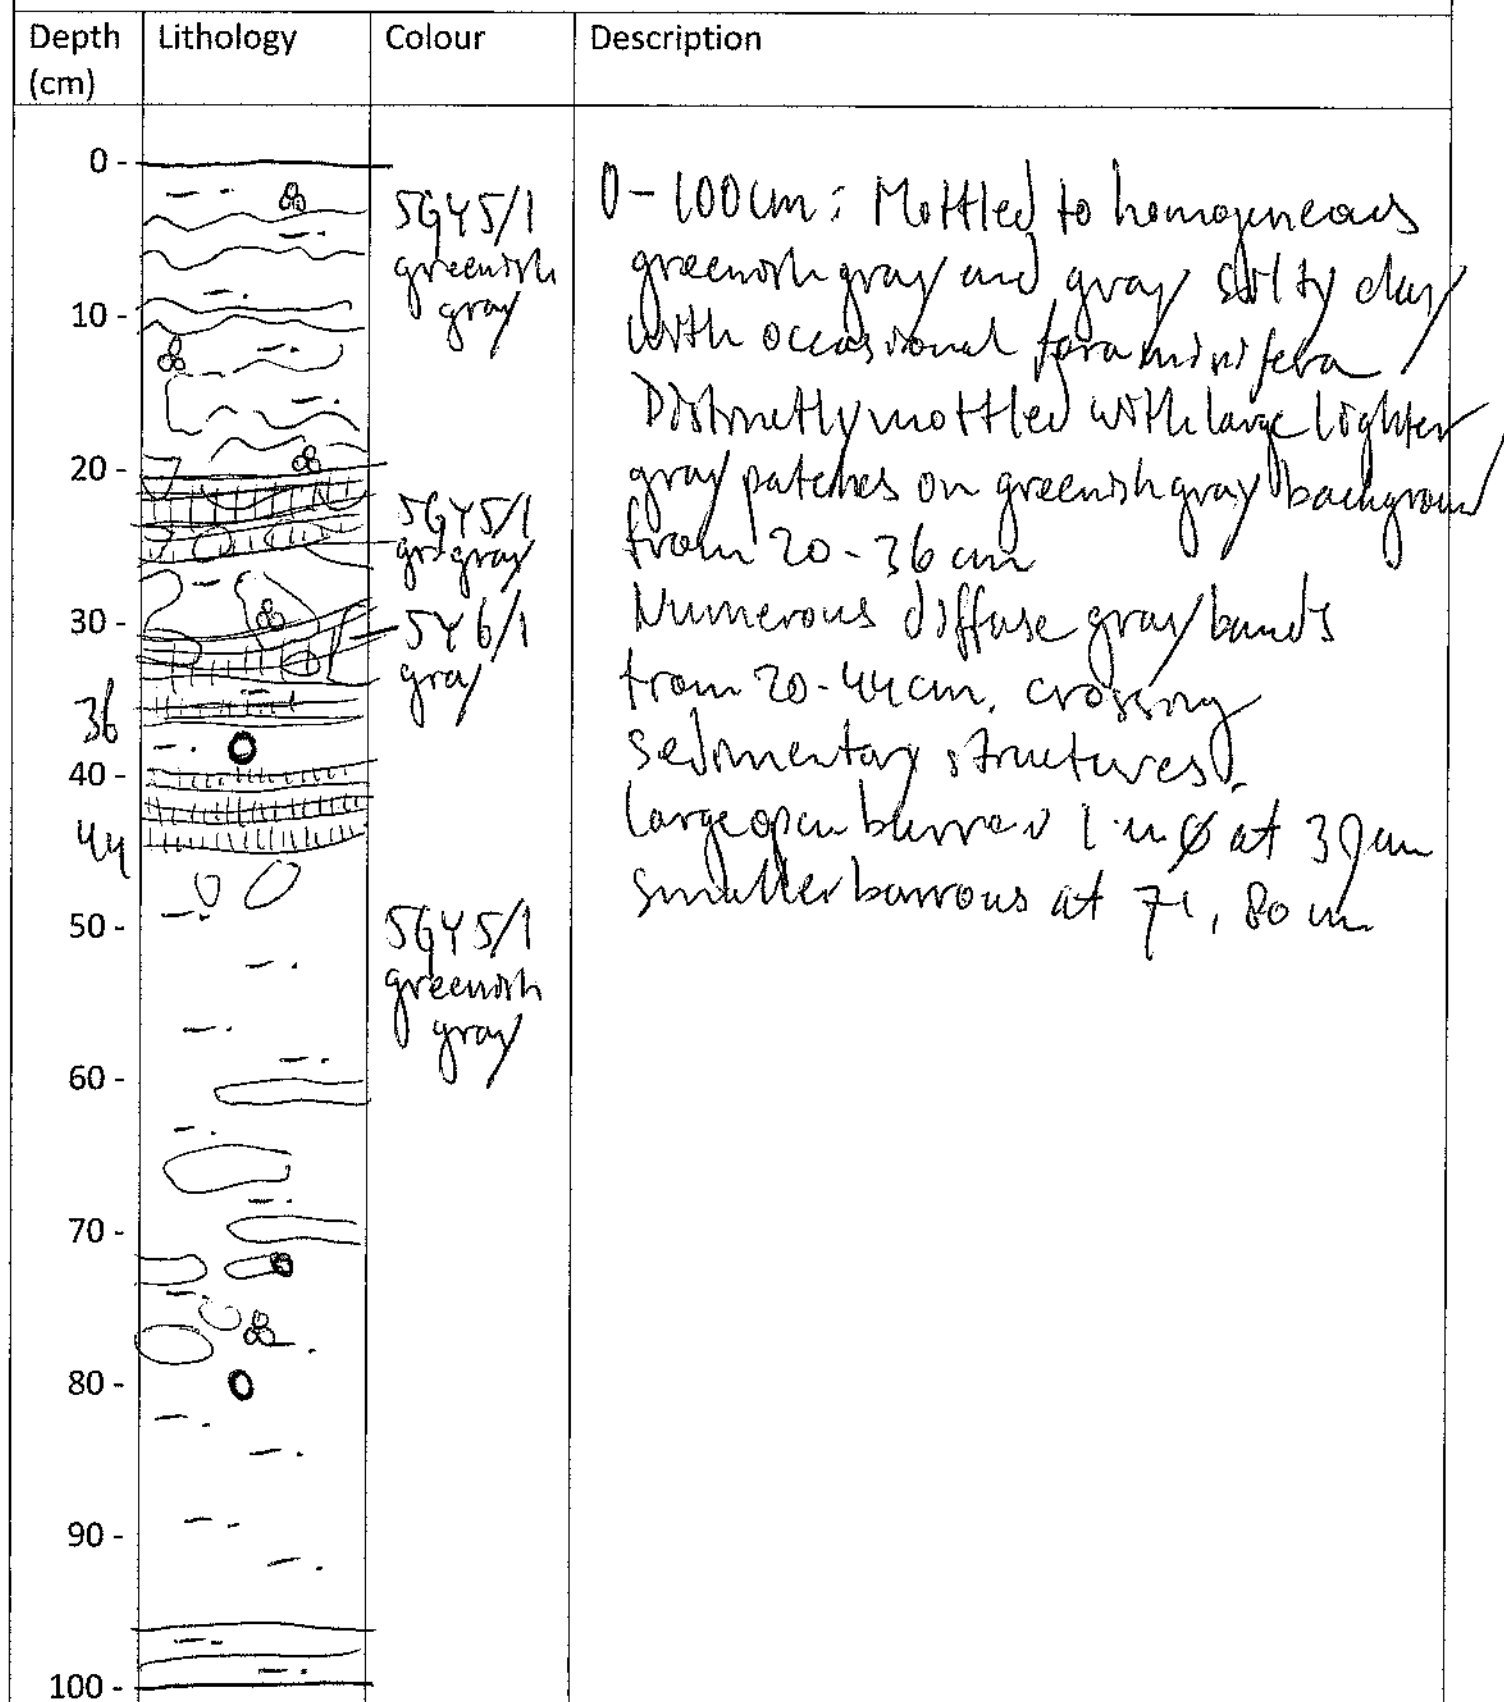 Depth (cm) Lithology Colour Description
0 -
10 -
20 -
30 -
36
40 -
44
50 -
60 -
70 -
80 -
90 -
100 -
5GY5/1
greenish
gray
5GY5/1
gr gray
5Y 6/1
gray
5GY5/1
greenish
gray
0-100cm: Mottled to homogeneous
greenish gray and gray silty clay
with occasional foraminifera
Distinctly mottled with large lighter
gray patches on greenish gray background
from 20-36 cm
Numerous diffuse gray bands
from 20-44cm, crossing
sedimentary structures.
large open burrow 1 Ø at
smaller burrows at 71, 80 cm